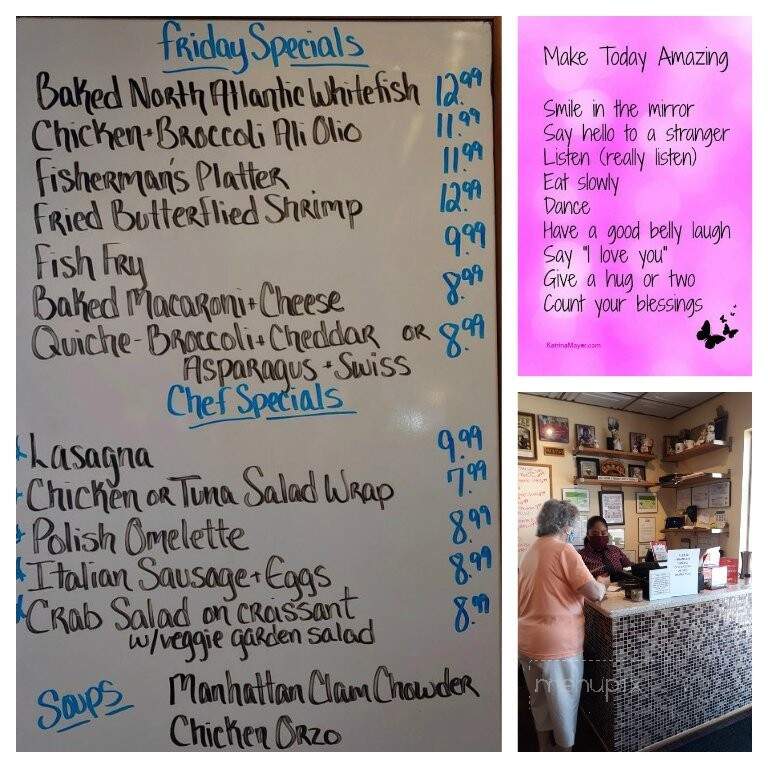 Friday Specials
Baked North Atlantic Whitefish 12.99
Chicken + Broccoli Ali Olio 11.99
Fisherman's Platter 11.99
Fried Butterflied Shrimp 12.99
Fish Fry 9.99
Baked Macaroni + Cheese 8.99
Quiche - Broccoli + Cheddar or 8.99
Asparagus + Swiss
Chef Specials
Lasagna 9.99
Chicken or Tuna Salad Wrap 7.99
Polish Omelette 8.99
Italian Sausage + Eggs 8.99
Crab Salad on craissant 8.99
w/veggie garden salad
Soups Manhattan Clam Chowder
Chicken Orzo
Make Today Amazing
Smile in the mirror
Say hello to a stranger
Listen (really listen)
Eat slowly
Dance
Have a good belly laugh
Say "I love you"
Give a hug or two
Count your blessings
KatrinaMayer.com
menupix